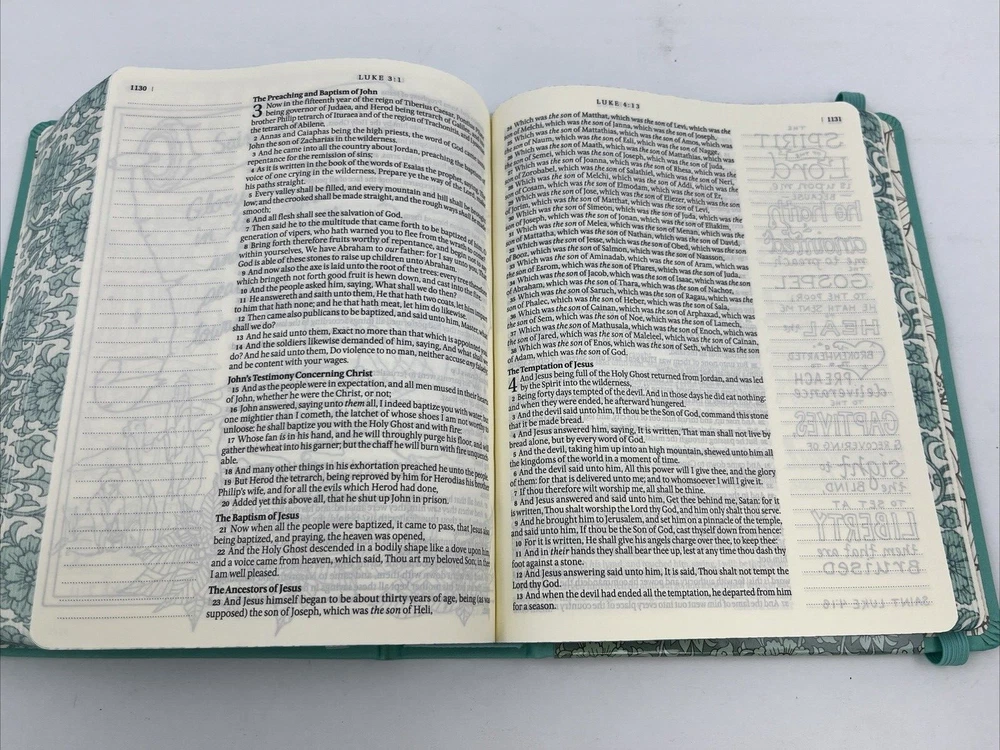 1130
LUKE 3:1
The Preaching and Baptism of John
3 Now in the fifteenth year of the reign of Tiberius Caesar, Pontius
being governor of Judaea, and Herod being tetrarch of Galilee,
brother Philip tetrarch of Ituraea and of the region of Trachonitis, and
the tetrarch of Abilene,
2 Annas and Caiaphas being the high priests, the word of God came
John the son of Zacharias in the wilderness.
3 And he came into all the country about Jordan, preaching the baptism
repentance for the remission of sins;
4 As it is written in the book of the words of Esaias the prophet, saying,
voice of one crying in the wilderness, Prepare ye the way of the Lord,
his paths straight.
5 Every valley shall be filled, and every mountain and hill shall be brought
low; and the crooked shall be made straight, and the rough ways shall be
smooth;
6 And all flesh shall see the salvation of God.
7 Then said he to the multitude that came forth to be baptized of him,
generation of vipers, who hath warned you to flee from the wrath to come?
8 Bring forth therefore fruits worthy of repentance, and begin not to say
within yourselves, We have Abraham to our father: for I say unto you, That
God is able of these stones to raise up children unto Abraham.
9 And now also the axe is laid unto the root of the trees: every tree therefore
which bringeth not forth good fruit is hewn down, and cast into the fire.
10 And the people asked him, saying, What shall we do then?
11 He answereth and saith unto them, He that hath two coats, let him impart
to him that hath none; and he that hath meat, let him do likewise.
12 Then came also publicans to be baptized, and said unto him, Master, what
shall we do?
13 And he said unto them, Exact no more than that which is appointed you.
14 And the soldiers likewise demanded of him, saying, And what shall we
do? And he said unto them, Do violence to no man, neither accuse any falsely;
and be content with your wages.
John's Testimony Concerning Christ
15 And as the people were in expectation, and all men mused in their hearts
of John, whether he were the Christ, or not;
16 John answered, saying unto them all, I indeed baptize you with water; but
one mightier than I cometh, the latchet of whose shoes I am not worthy to
unloose: he shall baptize you with the Holy Ghost and with fire:
17 Whose fan is in his hand, and he will throughly purge his floor, and will
gather the wheat into his garner; but the chaff he will burn with fire unquench-
able.
18 And many other things in his exhortation preached he unto the people.
19 But Herod the tetrarch, being reproved by him for Herodias his brother
Philip's wife, and for all the evils which Herod had done,
20 Added yet this above all, that he shut up John in prison.
The Baptism of Jesus
21 Now when all the people were baptized, it came to pass, that Jesus also
being baptized, and praying, the heaven was opened,
22 And the Holy Ghost descended in a bodily shape like a dove upon him,
and a voice came from heaven, which said, Thou art my beloved Son; in thee
I am well pleased.
The Ancestors of Jesus
23 And Jesus himself began to be about thirty years of age, being (as was
supposed) the son of Joseph, which was the son of Heli,
LUKE 4:13
1131
24 Which was the son of Matthat, which was the son of Levi, which was the
son of Melchi, which was the son of Janna, which was the son of Joseph,
25 Which was the son of Mattathias, which was the son of Amos, which was
the son of Naum, which was the son of Esli, which was the son of Nagge,
26 Which was the son of Maath, which was the son of Mattathias, which was
the son of Semei, which was the son of Joseph, which was the son of Juda,
27 Which was the son of Joanna, which was the son of Rhesa, which was the
son of Zorobabel, which was the son of Salathiel, which was the son of Neri,
28 Which was the son of Melchi, which was the son of Addi, which was the
son of Cosam, which was the son of Elmodam, which was the son of Er,
29 Which was the son of Jose, which was the son of Eliezer, which was the son
of Jorim, which was the son of Matthat, which was the son of Levi,
30 Which was the son of Simeon, which was the son of Juda, which was the
son of Joseph, which was the son of Jonan, which was the son of Eliakim,
31 Which was the son of Melea, which was the son of Menan, which was the son
of Mattatha, which was the son of Nathan, which was the son of David,
32 Which was the son of Jesse, which was the son of Obed, which was the son
of Booz, which was the son of Salmon, which was the son of Naasson,
33 Which was the son of Aminadab, which was the son of Aram, which was
the son of Esrom, which was the son of Phares, which was the son of Juda,
34 Which was the son of Jacob, which was the son of Isaac, which was the son
of Abraham, which was the son of Thara, which was the son of Nachor,
35 Which was the son of Saruch, which was the son of Ragau, which was the
son of Phalec, which was the son of Heber, which was the son of Sala,
36 Which was the son of Cainan, which was the son of Arphaxad, which was
the son of Sem, which was the son of Noe, which was the son of Lamech,
37 Which was the son of Mathusala, which was the son of Enoch, which was
the son of Jared, which was the son of Maleleel, which was the son of Cainan,
38 Which was the son of Enos, which was the son of Seth, which was the son
of Adam, which was the son of God.
The Temptation of Jesus
4 And Jesus being full of the Holy Ghost returned from Jordan, and was led
by the Spirit into the wilderness,
2 Being forty days tempted of the devil. And in those days he did eat nothing:
and when they were ended, he afterward hungered.
3 And the devil said unto him, If thou be the Son of God, command this stone
that it be made bread.
4 And Jesus answered him, saying, It is written, That man shall not live by
bread alone, but by every word of God.
5 And the devil, taking him up into an high mountain, shewed unto him all
the kingdoms of the world in a moment of time.
6 And the devil said unto him, All this power will I give thee, and the glory
of them: for that is delivered unto me; and to whomsoever I will I give it.
7 If thou therefore wilt worship me, all shall be thine.
8 And Jesus answered and said unto him, Get thee behind me, Satan: for it
is written, Thou shalt worship the Lord thy God, and him only shalt thou serve.
9 And he brought him to Jerusalem, and set him on a pinnacle of the temple,
and said unto him, If thou be the Son of God, cast thyself down from hence:
10 For it is written, He shall give his angels charge over thee, to keep thee:
11 And in their hands they shall bear thee up, lest at any time thou dash thy
foot against a stone.
12 And Jesus answering said unto him, It is said, Thou shalt not tempt the
Lord thy God.
13 And when the devil had ended all the temptation, he departed from him
for a season.
THE
SPIRIT
Lord
is upon me
BECAUSE
He hath
anointed
me to preach
THE
GOSPEL
TO THE POOR;
HE HATH SENT ME
HEAL the
BROKENHEARTED
PREACH
deliverance
TO THE
CAPTIVES,
& RECOVERING OF
Sight to
the BLIND,
TO SET AT
LIBERTY
them that are
Bruised
SAINT LUKE 4:18